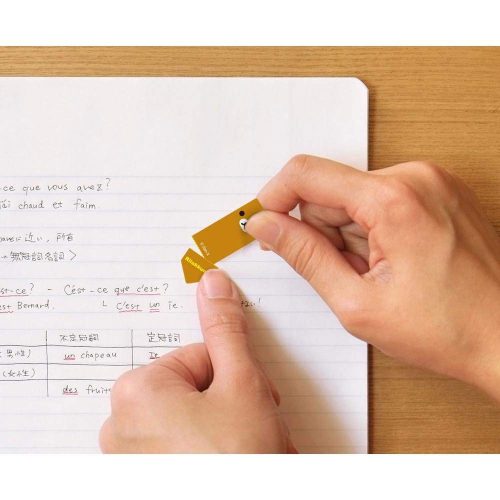 -ce que vous avez?
J'ai chaud et faim.
avoirに近い,所有
→無冠詞名詞>
est-ce? - C'est-ce que c'est?
est Bernard, └ C'est un Je.
Rilakkuma
不定冠詞 定冠詞
(男性) un chapeau Ie
(女性)
des fruits